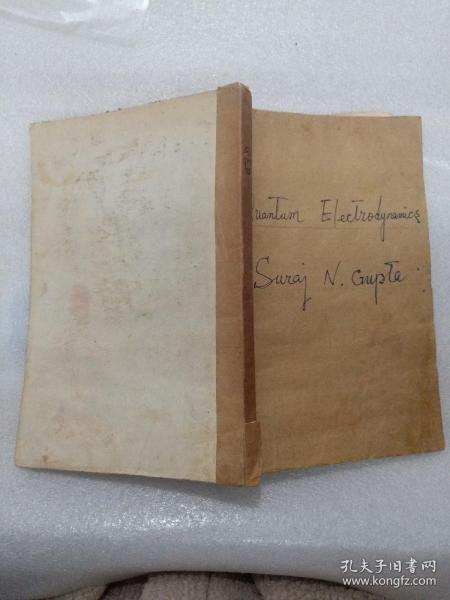 Quantum Electrodynamics
Suraj N. Gupta
孔夫子旧书网
www.kongfz.com